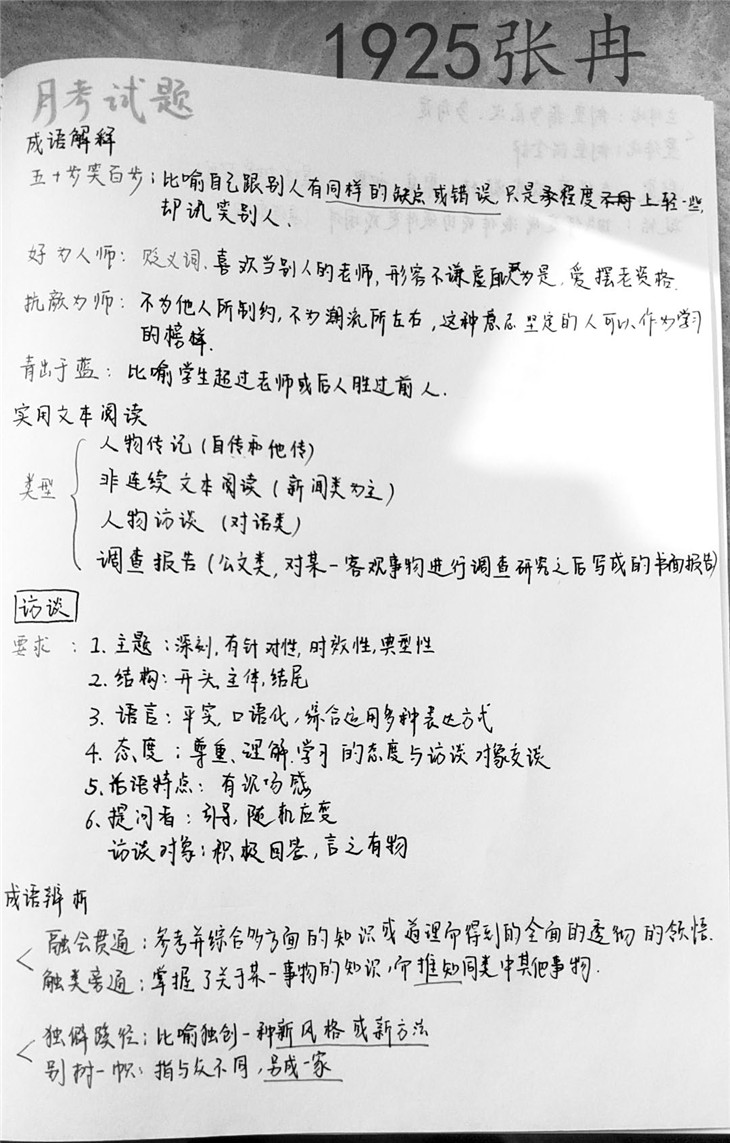 1925张冉
月考试题
成语解释
五十步笑百步：比喻自己跟别人有同样的缺点或错误,只是程度上轻一些,
却讥笑别人.
好为人师：贬义词.喜欢当别人的老师,形容不谦虚,自以为是,爱摆老资格.
抗敌为师：不为他人所制约,不为潮流所左右,这种意志坚定的人可以作为学习
的榜样.
青出于蓝：比喻学生超过老师或后人胜过前人.
实用文本阅读
类型
人物传记(自传和他传)
非连续文本阅读(新闻类为主)
人物访谈(对话类)
调查报告(公文类,对某一客观事物进行调查研究之后写成的书面报告)
访谈
要求：1.主题：深刻,有针对性,时效性,典型性
2.结构：开头,主体,结尾
3.语言：平实,口语化,综合运用多种表达方式
4.态度：尊重、理解.学习的态度与访谈对象交谈
5.话语特点：有现场感
6.提问者：引导,随机应变
访谈对象：积极回答,言之有物
成语辨析
融会贯通：参考并综合多方面的知识或道理而得到的全面的透彻的领悟.
触类旁通：掌握了关于某一事物的知识,而推知同类中其他事物.
独辟蹊径：比喻独创一种新风格或新方法
别树一帜：指与众不同,另成一家